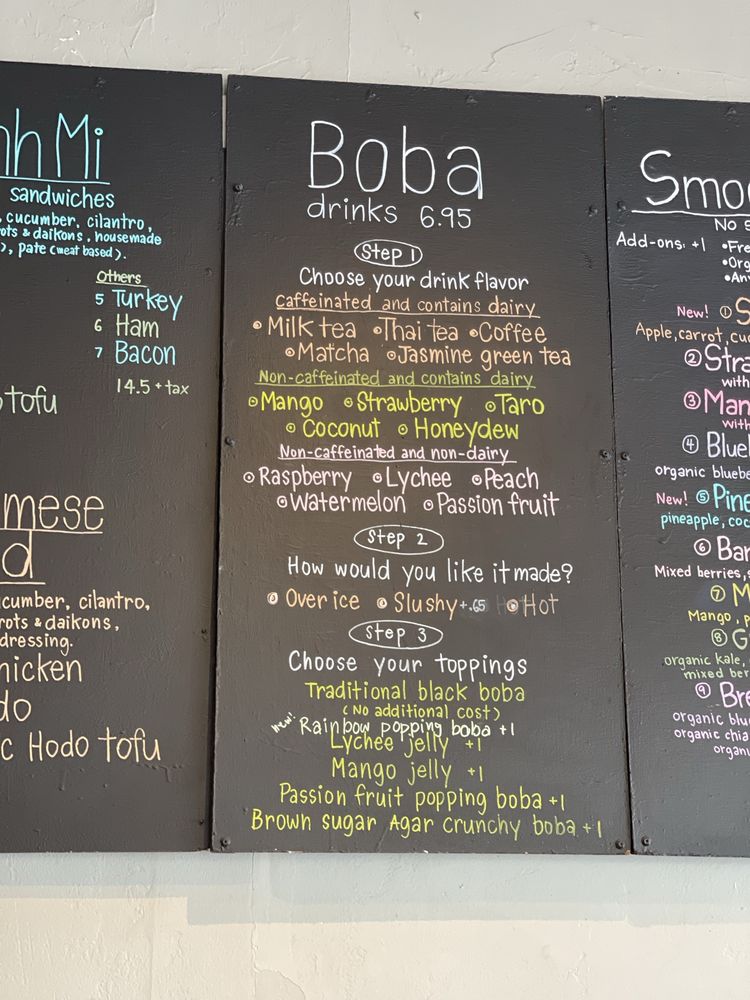 Mi
sandwiches
cucumber, cilantro,
& daikons, housemade
pate (meat based).
Others
5 Turkey
6 Ham
7 Bacon
14.5 + tax
tofu
cucumber, cilantro,
& daikons,
dressing.
c Hodo tofu
Boba
drinks 6.95
Step 1
Choose your drink flavor
Caffeinated and contains dairy
Milk tea Thai tea Coffee
Matcha Jasmine green tea
Non-caffeinated and contains dairy
Mango Strawberry Taro
Coconut Honeydew
Non-caffeinated and non-dairy
Raspberry Lychee Peach
Watermelon Passion fruit
Step 2
How would you like it made?
Over ice Slushy +.65 Hot
Step 3
Choose your toppings
Traditional black boba
(No additional cost)
new! Rainbow popping boba +1
Lychee jelly +1
Mango jelly +1
Passion fruit popping boba +1
Brown sugar Agar crunchy boba +1
Smoo
No s
Add-ons: +1 •Fre
•Org
•An
New! ① S
Apple, carrot, cuc
② Stra
with
③ Man
with
④ Blue
organic bluebe
New! ⑤ Pine
pineapple, coc
⑥ Ban
Mixed berries, s
⑦ M
Mango, p
⑧ G
organic kale,
mixed ber
⑨ Bre
organic blu
organic chia
organi